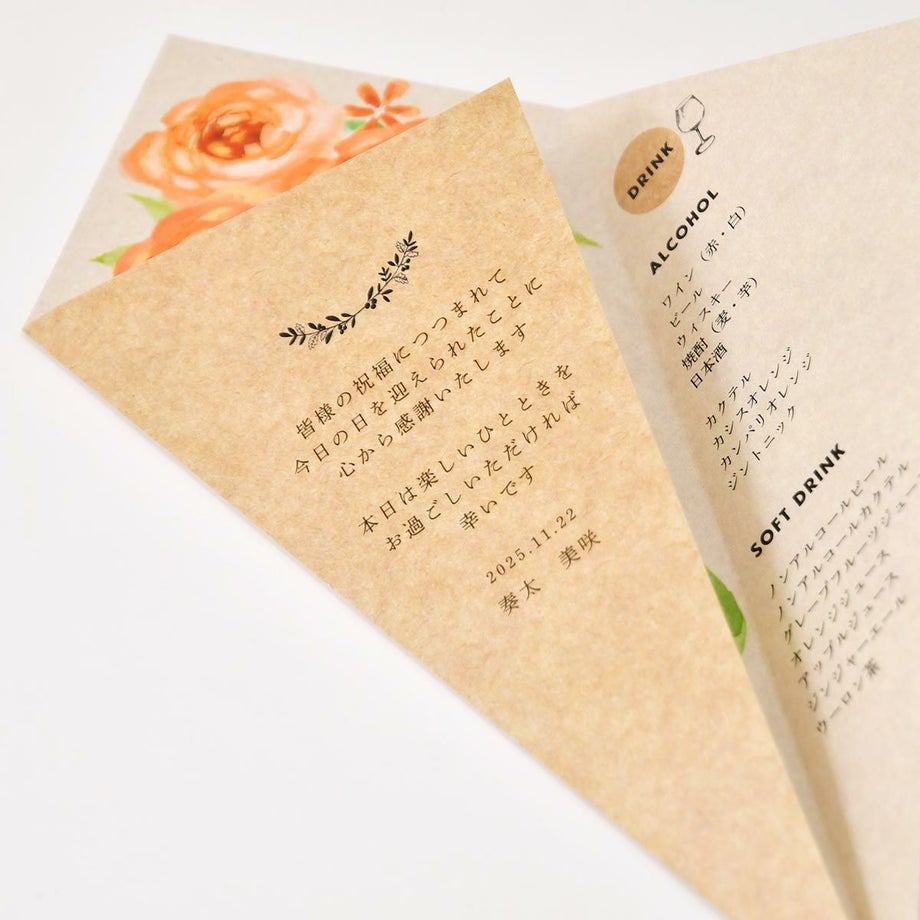 皆様の祝福につつまれて
今日の日を迎えられたことに
心から感謝いたします
本日は楽しいひとときを
お過ごしいただければ
幸いです
2025.11.22
奏太 美咲
DRINK
ALCOHOL
ワイン（赤・白）
ビール
ウイスキー
焼酎（麦・芋）
日本酒
カクテル
カシスオレンジ
カンパリオレンジ
ジントニック
SOFT DRINK
ノンアルコールビール
ノンアルコールカクテル
グレープフルーツジュー
オレンジジュース
アップルジュース
ジンジャーエール
ウーロン茶